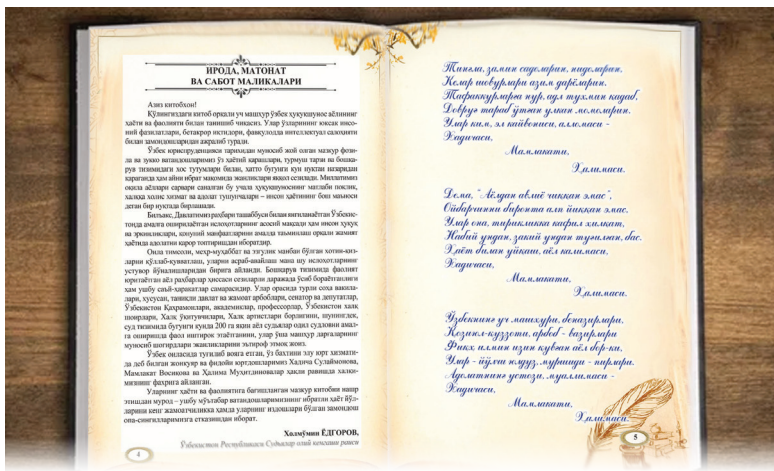 ИРОДА, МАТОНАТ
ВА САБОТ МАЛИКАЛАРИ
Азиз китобхон!
Қўлингиздаги китоб орқали уч машҳур ўзбек ҳуқуқшунос аёлининг
ҳаёти ва фаолияти билан танишиб чиқасиз. Улар ўзларининг юксак инсо-
ний фазилатлари, бетакрор иқтидори, фавқулодда интеллектуал салоҳияти
билан замондошларидан ажралиб туради.
Ўзбек юриспруденцияси тарихидан муносиб жой олган мазкур фози-
ла ва зукко ватандошларимиз ўз ҳаётий қарашлари, турмуш тарзи ва бошқа-
рув тизимидаги хос тутумлари билан, ҳатто бугунги кун нуқтаи назаридан
қараганда ҳам айни ибрат мақомида эканликлари яққол сезилади. Миллатимиз
оқила аёллари сарвари саналган бу учала ҳуқуқшуноснинг матлаби поклик,
халққа холис хизмат ва адолат тушунчалари – инсон ҳаётининг бош маъноси
деган бир нуқтада бирлашади.
Билъакс, Давлатимиз раҳбари ташаббуси билан янгиланаётган Ўзбекис-
тонда амалга оширилаётган ислоҳотларнинг асосий мақсади ҳам инсон ҳуқуқ
ва эркинликлари, қонуний манфаатларини амалда таъминлаш орқали жамият
ҳаётида адолатни қарор топтиришдан иборатдир.
Оила тимсоли, меҳр-муҳаббат ва эзгулик манбаи бўлган хотин-қиз-
ларни қўллаб-қувватлаш, уларни асраб-авайлаш мана шу ислоҳотларнинг
устувор йўналишларидан бирига айланди. Бошқарув тизимида фаолият
юритаётган аёл раҳбарлар ҳиссаси сезиларли даражада ўсиб бораётганлиги
ҳам ушбу саъй-ҳаракатлар самарасидир. Улар орасида турли соҳа вакила-
лари, хусусан, таниқли давлат ва жамоат арбоблари, сенатор ва депутатлар,
Ўзбекистон Қаҳрамонлари, академиклар, профессорлар, Ўзбекистон халқ
шоирлари, Халқ ўқитувчилари, Халқ артистлари борлигини, шунингдек,
суд тизимида бугунги кунда 200 га яқин аёл судьялар одил судловни амал-
га оширишда фаол иштирок этаётганини, улар ўша машҳур даргаларнинг
муносиб шогирдлари эканликларини эътироф этмоқ жоиз.
Ўзбек оиласида туғилиб вояга етган, ўз бахтини элу юрт хизмати-
да деб билган жонкуяр ва фидойи юртдошларимиз Хадича Сулаймонова,
Мамлакат Восиқова ва Ҳалима Муҳитдиновалар ҳақли равишда халқи-
мизнинг фахрига айланган.
Уларнинг ҳаёти ва фаолиятига бағишланган мазкур китобни нашр
этишдан мурод – ушбу мўътабар ватандошларимизнинг ибратли ҳаёт йўл-
ларини кенг жамоатчиликка ҳамда уларнинг издошлари бўлган замондош
опа-сингилларимизга етказишдан иборат.
Холмўмин ЁДГОРОВ,
Ўзбекистон Республикаси Судьялар олий кенгаши раиси
4
Тингла, замин садоларин, нидоларин,
Келар шовурлари азим дарёларин.
Тафаккурларга нур, адл тухмин қадаб,
Довруғ таратиб ўтган улкан момоларин.
Улар ким, эл кайвониси, алломаси -
Хадичаси,
Мамлакати,
Ҳалимаси.
Дема, "Аёлдан авлиё чиққан эмас",
Ойбаргинни биронта али йиққан эмас,
Улар она, тирикликка кафил хилқат,
Набий ундан, закий ундан туғилган, бас.
Ҳаёт билан уйқаш, аёл калимаси.
Хадичаси,
Мамлакати,
Ҳалимаси.
Ўзбекнинг уч машҳури, беназирлари,
Қозиюл-куззоти, арбоб - вазирлари
Фикҳ илмин изин қувган аёл бор-ки,
Улар - йўлчи юлдуз, муршиди - пирлари.
Адолатнинг устози, муаллимаси -
Хадичаси,
Мамлакати,
Ҳалимаси.
5